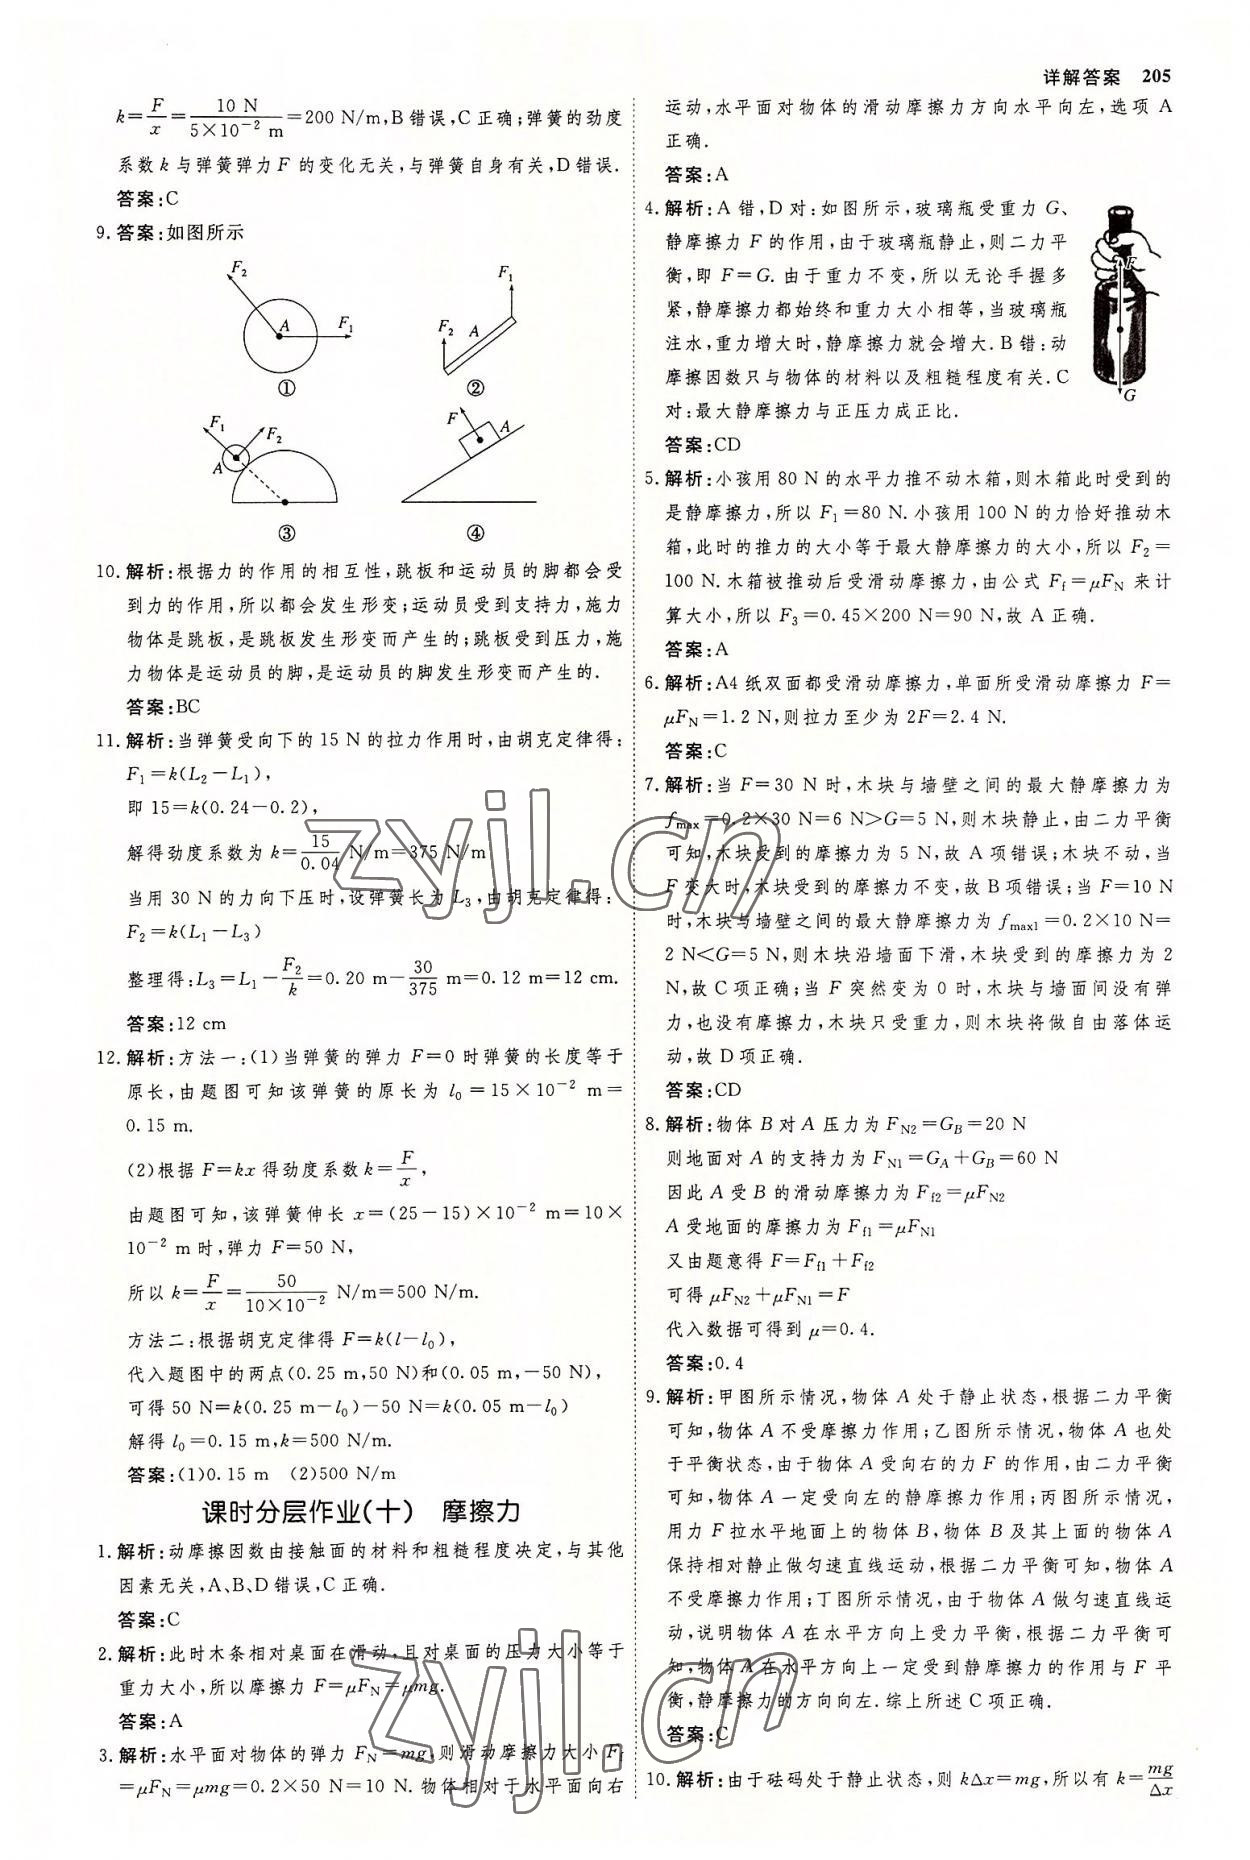 详解答案 205
k=F/x=10 N/5×10⁻² m=200 N/m,B错误,C正确;弹簧的劲度
系数k与弹簧弹力F的变化无关,与弹簧自身有关,D错误.
答案:C
9.答案:如图所示
F₂
A
F₁
①
F₁
F₂
A
②
F₁
F₂
A
③
F
A
④
10.解析:根据力的作用的相互性,跳板和运动员的脚都会受
到力的作用,所以都会发生形变;运动员受到支持力,施力
物体是跳板,是跳板发生形变而产生的;跳板受到压力,施
力物体是运动员的脚,是运动员的脚发生形变而产生的.
答案:BC
11.解析:当弹簧受向下的15 N的拉力作用时,由胡克定律得:
F₁=k(L₂-L₁),
即15=k(0.24-0.2),
解得劲度系数为k=15/0.04 N/m=375 N/m
当用30 N的力向下压时,设弹簧长为L₃,由胡克定律得:
F₂=k(L₁-L₃)
整理得:L₃=L₁-F₂/k=0.20 m-30/375 m=0.12 m=12 cm.
答案:12 cm
12.解析:方法一:(1)当弹簧的弹力F=0时弹簧的长度等于
原长,由题图可知该弹簧的原长为l₀=15×10⁻² m=
0.15 m.
(2)根据F=kx得劲度系数k=F/x,
由题图可知,该弹簧伸长x=(25-15)×10⁻² m=10×
10⁻² m时,弹力F=50 N,
所以k=F/x=50/10×10⁻² N/m=500 N/m.
方法二:根据胡克定律得F=k(l-l₀),
代入题图中的两点(0.25 m,50 N)和(0.05 m,-50 N),
可得50 N=k(0.25 m-l₀)-50 N=k(0.05 m-l₀)
解得l₀=0.15 m,k=500 N/m.
答案:(1)0.15 m (2)500 N/m
课时分层作业(十) 摩擦力
1.解析:动摩擦因数由接触面的材料和粗糙程度决定,与其他
因素无关,A、B、D错误,C正确.
答案:C
2.解析:此时木条相对桌面在滑动,且对桌面的压力大小等于
重力大小,所以摩擦力F=μF_N=μmg.
答案:A
3.解析:水平面对物体的弹力F_N=mg,则滑动摩擦力大小F_f
=μF_N=μmg=0.2×50 N=10 N.物体相对于水平面向右
运动,水平面对物体的滑动摩擦力方向水平向左,选项A
正确.
答案:A
4.解析:A错,D对:如图所示,玻璃瓶受重力G、
静摩擦力F的作用,由于玻璃瓶静止,则二力平
衡,即F=G.由于重力不变,所以无论手握多
紧,静摩擦力都始终和重力大小相等,当玻璃瓶
注水,重力增大时,静摩擦力就会增大.B错:动
摩擦因数只与物体的材料以及粗糙程度有关.C
对:最大静摩擦力与正压力成正比.
F
G
答案:CD
5.解析:小孩用80 N的水平力推不动木箱,则木箱此时受到的
是静摩擦力,所以F₁=80 N.小孩用100 N的力恰好推动木
箱,此时的推力的大小等于最大静摩擦力的大小,所以F₂=
100 N.木箱被推动后受滑动摩擦力,由公式F_f=μF_N来计
算大小,所以F₃=0.45×200 N=90 N,故A正确.
答案:A
6.解析:A4纸双面都受滑动摩擦力,单面所受滑动摩擦力F=
μF_N=1.2 N,则拉力至少为2F=2.4 N.
答案:C
7.解析:当F=30 N时,木块与墙壁之间的最大静摩擦力为
f_max=0.2×30 N=6 N>G=5 N,则木块静止,由二力平衡
可知,木块受到的摩擦力为5 N,故A项错误;木块不动,当
F变大时,木块受到的摩擦力不变,故B项错误;当F=10 N
时,木块与墙壁之间的最大静摩擦力为f_max1=0.2×10 N=
2 N<G=5 N,则木块沿墙面下滑,木块受到的摩擦力为2
N,故C项正确;当F突然变为0时,木块与墙面间没有弹
力,也没有摩擦力,木块只受重力,则木块将做自由落体运
动,故D项正确.
答案:CD
8.解析:物体B对A压力为F_N2=G_B=20 N
则地面对A的支持力为F_N1=G_A+G_B=60 N
因此A受B的滑动摩擦力为F_f2=μF_N2
A受地面的摩擦力为F_f1=μF_N1
又由题意得F=F_f1+F_f2
可得μF_N2+μF_N1=F
代入数据可得到μ=0.4.
答案:0.4
9.解析:甲图所示情况,物体A处于静止状态,根据二力平衡
可知,物体A不受摩擦力作用;乙图所示情况,物体A也处
于平衡状态,由于物体A受向右的力F的作用,由二力平衡
可知,物体A一定受向左的静摩擦力作用;丙图所示情况,
用力F拉水平地面上的物体B,物体B及其上面的物体A
保持相对静止做匀速直线运动,根据二力平衡可知,物体A
不受摩擦力作用;丁图所示情况,由于物体A做匀速直线运
动,说明物体A在水平方向上受力平衡,根据二力平衡可
知,物体A在水平方向上一定受到静摩擦力的作用与F平
衡,静摩擦力的方向向左.综上所述C项正确.
答案:C
10.解析:由于砝码处于静止状态,则kΔx=mg,所以有k=mg/Δx
zyjl.cn
zyjl.cn